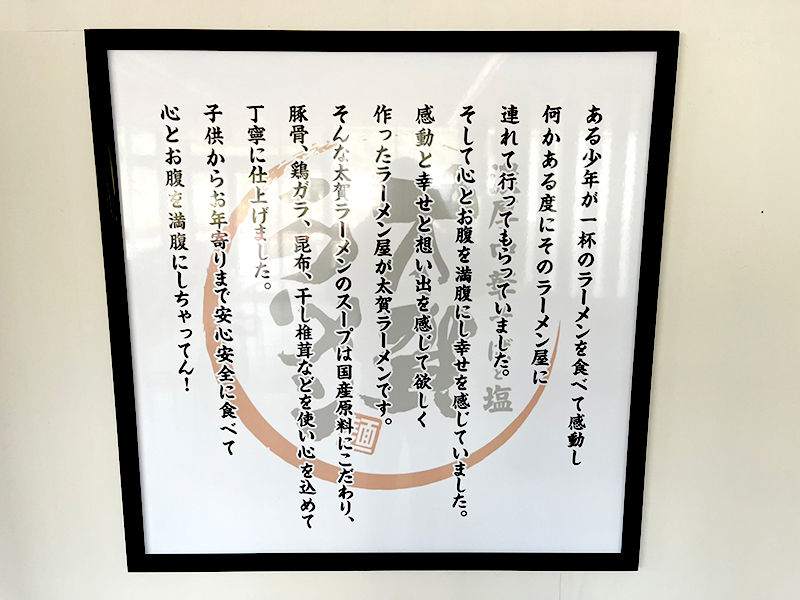 ある少年が一杯のラーメンを食べて感動し
何かある度にそのラーメン屋に
連れて行ってもらっていました。
そして心とお腹を満腹にし幸せを感じていました。
感動と幸せと想い出を感じて欲しく
作ったラーメン屋が太賀ラーメンです。
そんな太賀ラーメンのスープは国産原料にこだわり、
豚骨、鶏ガラ、昆布、干し椎茸などを使い心を込めて
丁寧に仕上げました。
子供からお年寄りまで安心安全に食べて
心とお腹を満腹にしちゃってん！
塩
麺